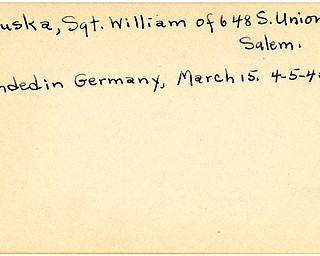 uska, Sgt. William of 648 S. Union
Salem.
nded in Germany, March 15. 4-5-4